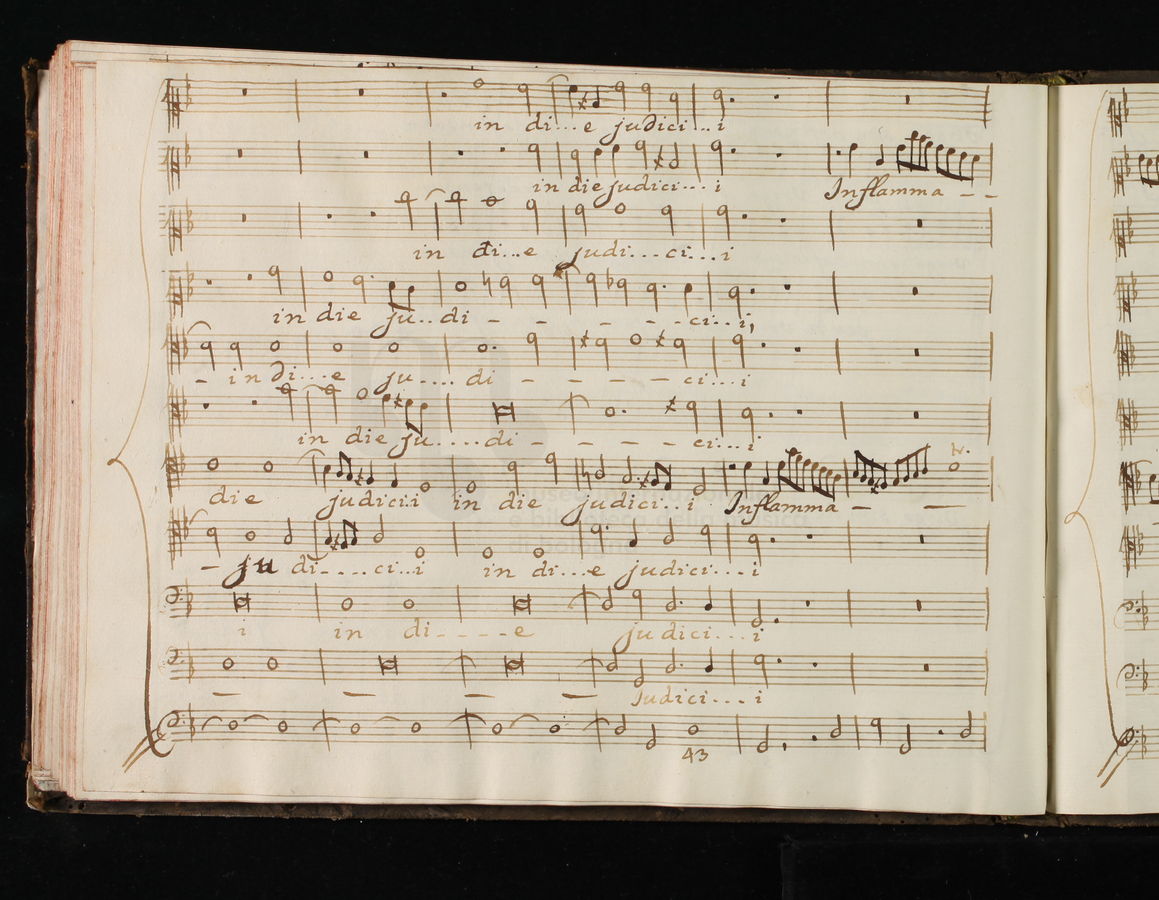 in di...e judici...i
in die judici....i Inflamma - -
in di...e judi...ci...i
in die ju..di - - - - ci...i,
- in di...e ju.... di - - - - ci...i
in die ju....di - - - - ci...i
tr.
die judici:i in die judici..i Inflamma - -
- ju di....ci..i in di...e judici....i
i in di- - - -e judici...i
- - - - Judici....i
43